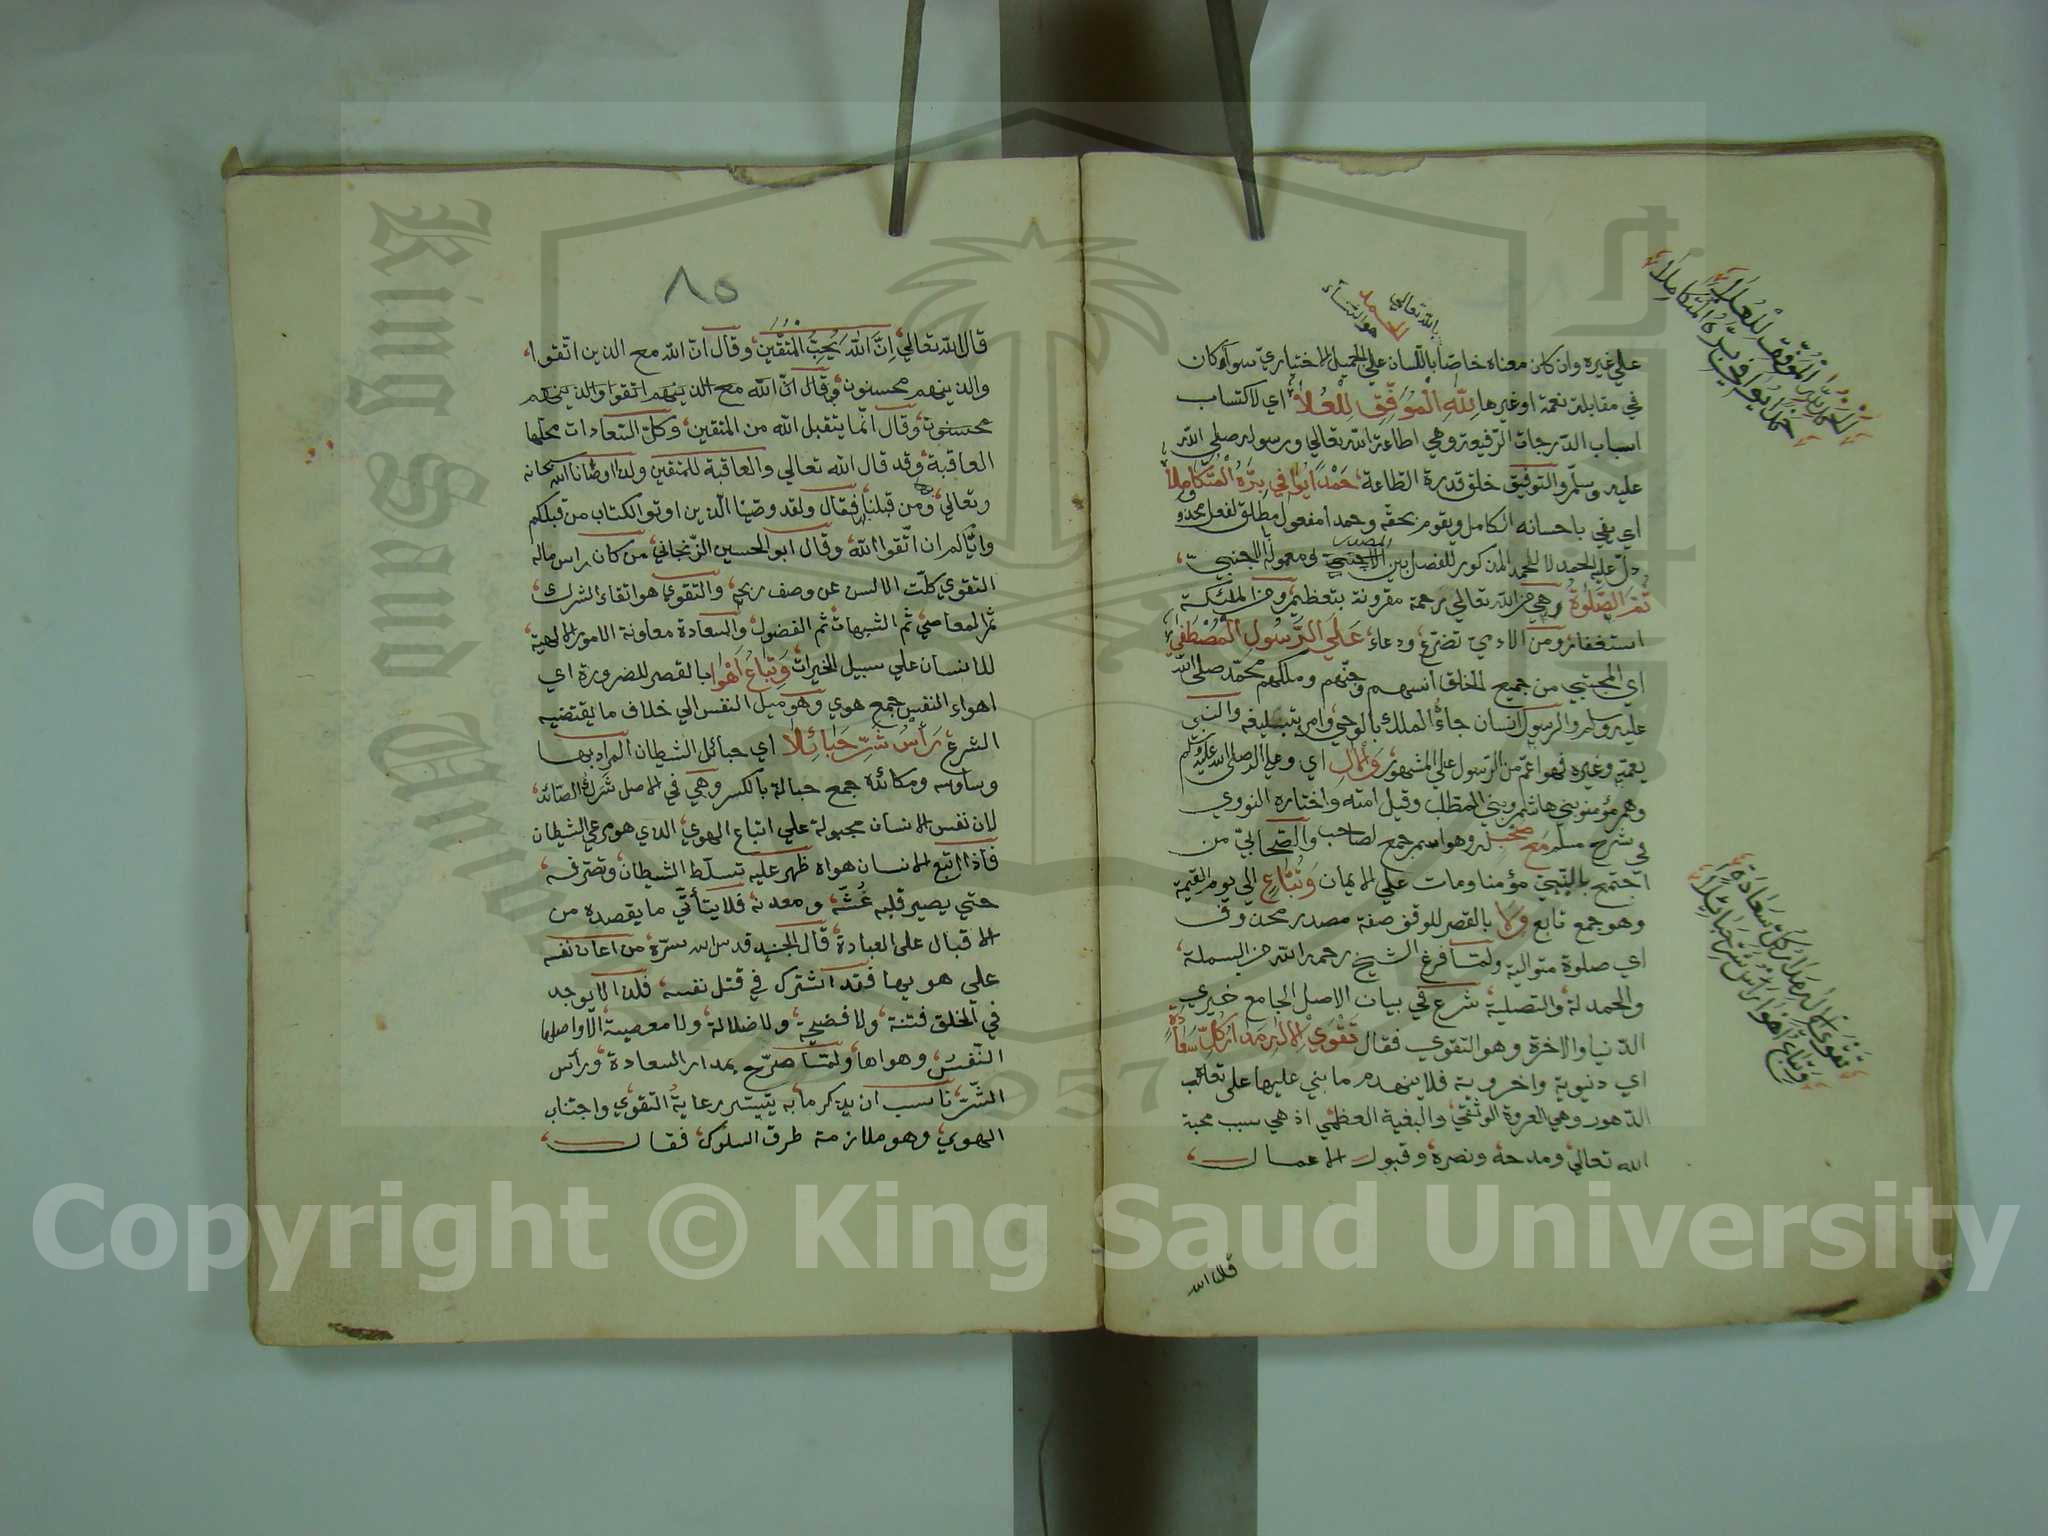 الحمد لله الموفق للعلا
حمدا يوافي بره المتكاملا
بالله تعالى
الحمد
هو الثناء
على غيره وان كان معناه خاصا باللسان على الجميل الاختياري سواء كان
في مقابلة نعمة او غيرها لله الموفق للعلا اي لاكتساب
اسباب الدرجات الرفيعة وهي اطاعة الله تعالى ورسوله صلى الله
عليه وسلم والتوفيق خلق قدرة الطاعة حمدا يوافي بره المتكاملا
اي يفي باحسانه الكامل ويقوم بحقه وحمدا مفعول مطلق لفعل محذوف
دل عليه الحمد لا للحمد المذكور للفصل بين المصدر ومعموله بالاجنبي
ثم الصلوة وهي من الله تعالى رحمة مقرونة بتعظيم ومن الملئكة
استغفار ومن الادمي تضرع ودعاء على الرسول المصطفى
اي المجتبى من جميع الخلق انسهم وجنهم وملكهم محمد صلى الله
عليه وسلم والرسول انسان جاءه الملك بالوحي وامر بتبليغه والنبي
يعمه وغيره فهو اعم من الرسول على المشهور والال اي وعلى اله صلى الله عليه وسلم
وهم مؤمنو بني هاشم وبني المطلب وقيل امته واختاره النووي
في شرح مسلم مع صحبه وهو اسم جمع لصاحب والصحابي من
اجتمع بالنبي مؤمنا ومات على الايمان وتباع الى يوم القيمة
وهو جمع تابع ولا بالقصر للوقف صفة مصدر محذوف
اي صلوة متوالية ولما فرغ الشيخ رحمه الله من البسملة
والحمدلة والتصلية شرع في بيان الاصل الجامع خيري
الدنيا والاخرة وهو التقوى فقال تقوى الاله مدار كل سعادة
اي دنيوية واخروية فلا ينهدم ما بني عليها على تعاقب
الدهور وهي العروة الوثقى والبغية العظمى اذ هي سبب محبة
الله تعالى ومدحه ونصره وقبول الاعمال
تقوى الاله مدار كل سعادة
وتباع اهوا راس شر حبائلا
قال الله
٨٥
قال الله تعالى ان الله يحب المتقين وقال ان الله مع الذين اتقوا
والذين هم محسنون وقال ان الله مع الذين اتقوا والذين هم
محسنون وقال انما يتقبل الله من المتقين وكل السعادات محلها
العاقبة وقد قال الله تعالى والعاقبة للمتقين ولذا وصانا الله سبحانه
وتعالى ومن قبلنا فقال ولقد وصينا الذين اوتوا الكتاب من قبلكم
واياكم ان اتقوا الله وقال ابو الحسين الزنجاني من كان راس ماله
التقوى كلت الالسن عن وصف ربحه والتقوى هو اتقاء الشرك
ثم المعاصي ثم الشبهات ثم الفضول والسعادة معاونة الامور الالهية
للانسان على سبيل الخيرات وتباع اهوا بالقصر للضرورة اي
اهواء النفس جمع هوى وهو ميل النفس الى خلاف ما يقتضيه
الشرع رأس شر حبائلا اي حبائل الشيطان المراد بها
وساوسه ومكائده جمع حبالة بالكسر وهي في الاصل شرك الصائد
لان نفس الانسان مجبولة على اتباع الهوى الذي هو مرعى الشيطان
فاذا اتبع الانسان هواه ظهر عليه تسلط الشيطان وتصرفه
حتى يصير قلبه عشه ومعدنه فلا يتأتى ما يقصده من
الاقبال على العبادة قال الجنيد قدس الله سره من اعان نفسه
على هويها فقد اشترك في قتل نفسه فلذا لا يوجد
في الخلق فتنة ولا فضيحة ولا ضلالة ولا معصية الا واصلها
النفس وهواها ولما صرح بمدار السعادة ورأس
الشر ناسب ان يذكر ما به يتيسر رعاية التقوى واجتناب
الهوى وهو ملازمة طرق السلوك فقال
King Saud University
1957
Copyright © King Saud University